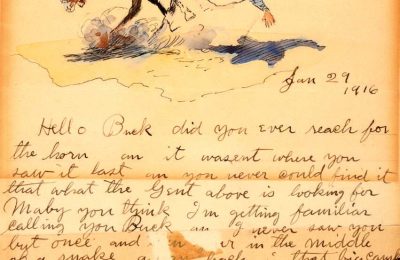 Jan 29
1916
Hello Buck did you ever reach for
the horn an it wasent where you
saw it last an you never could find it
that what the Gent above is looking for
Maby you think I'm getting familiar
calling you Buck an I never saw you
but once and in the middle
of a snake